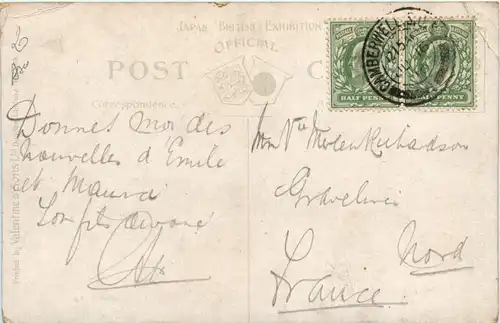 JAPAN BRITISH EXHIBITION
OFFICIAL
POST C
Correspondence.
CAMBERWELL
HALF PENNY HALF PENNY
Donnez moi des
nouvelles d'Emile
et
Son fils dévoué
Mme Vve Merlen Richardson
Gravelines
Nord
France
Printed by Valentine & Sons